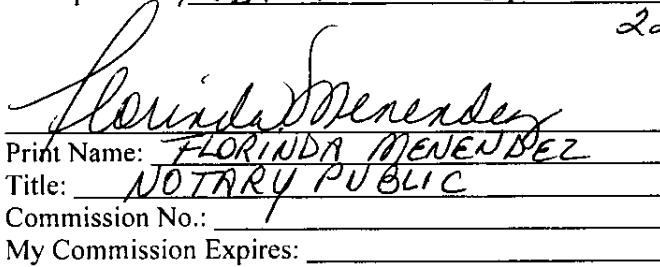 22
Florinda Menendez
Print Name: FLORINDA MENENDEZ
Title: NOTARY PUBLIC
Commission No.:
My Commission Expires: